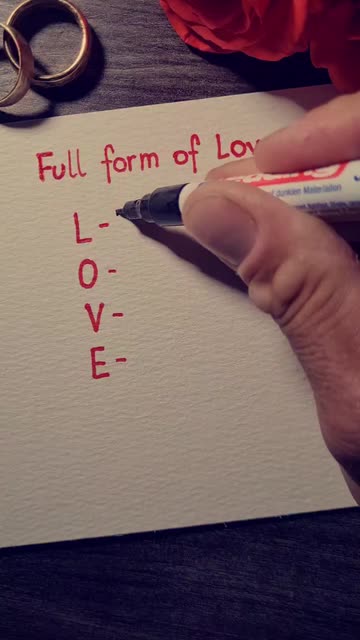 Full form of Lov
L -
O -
V -
E -
dunklen Materialien